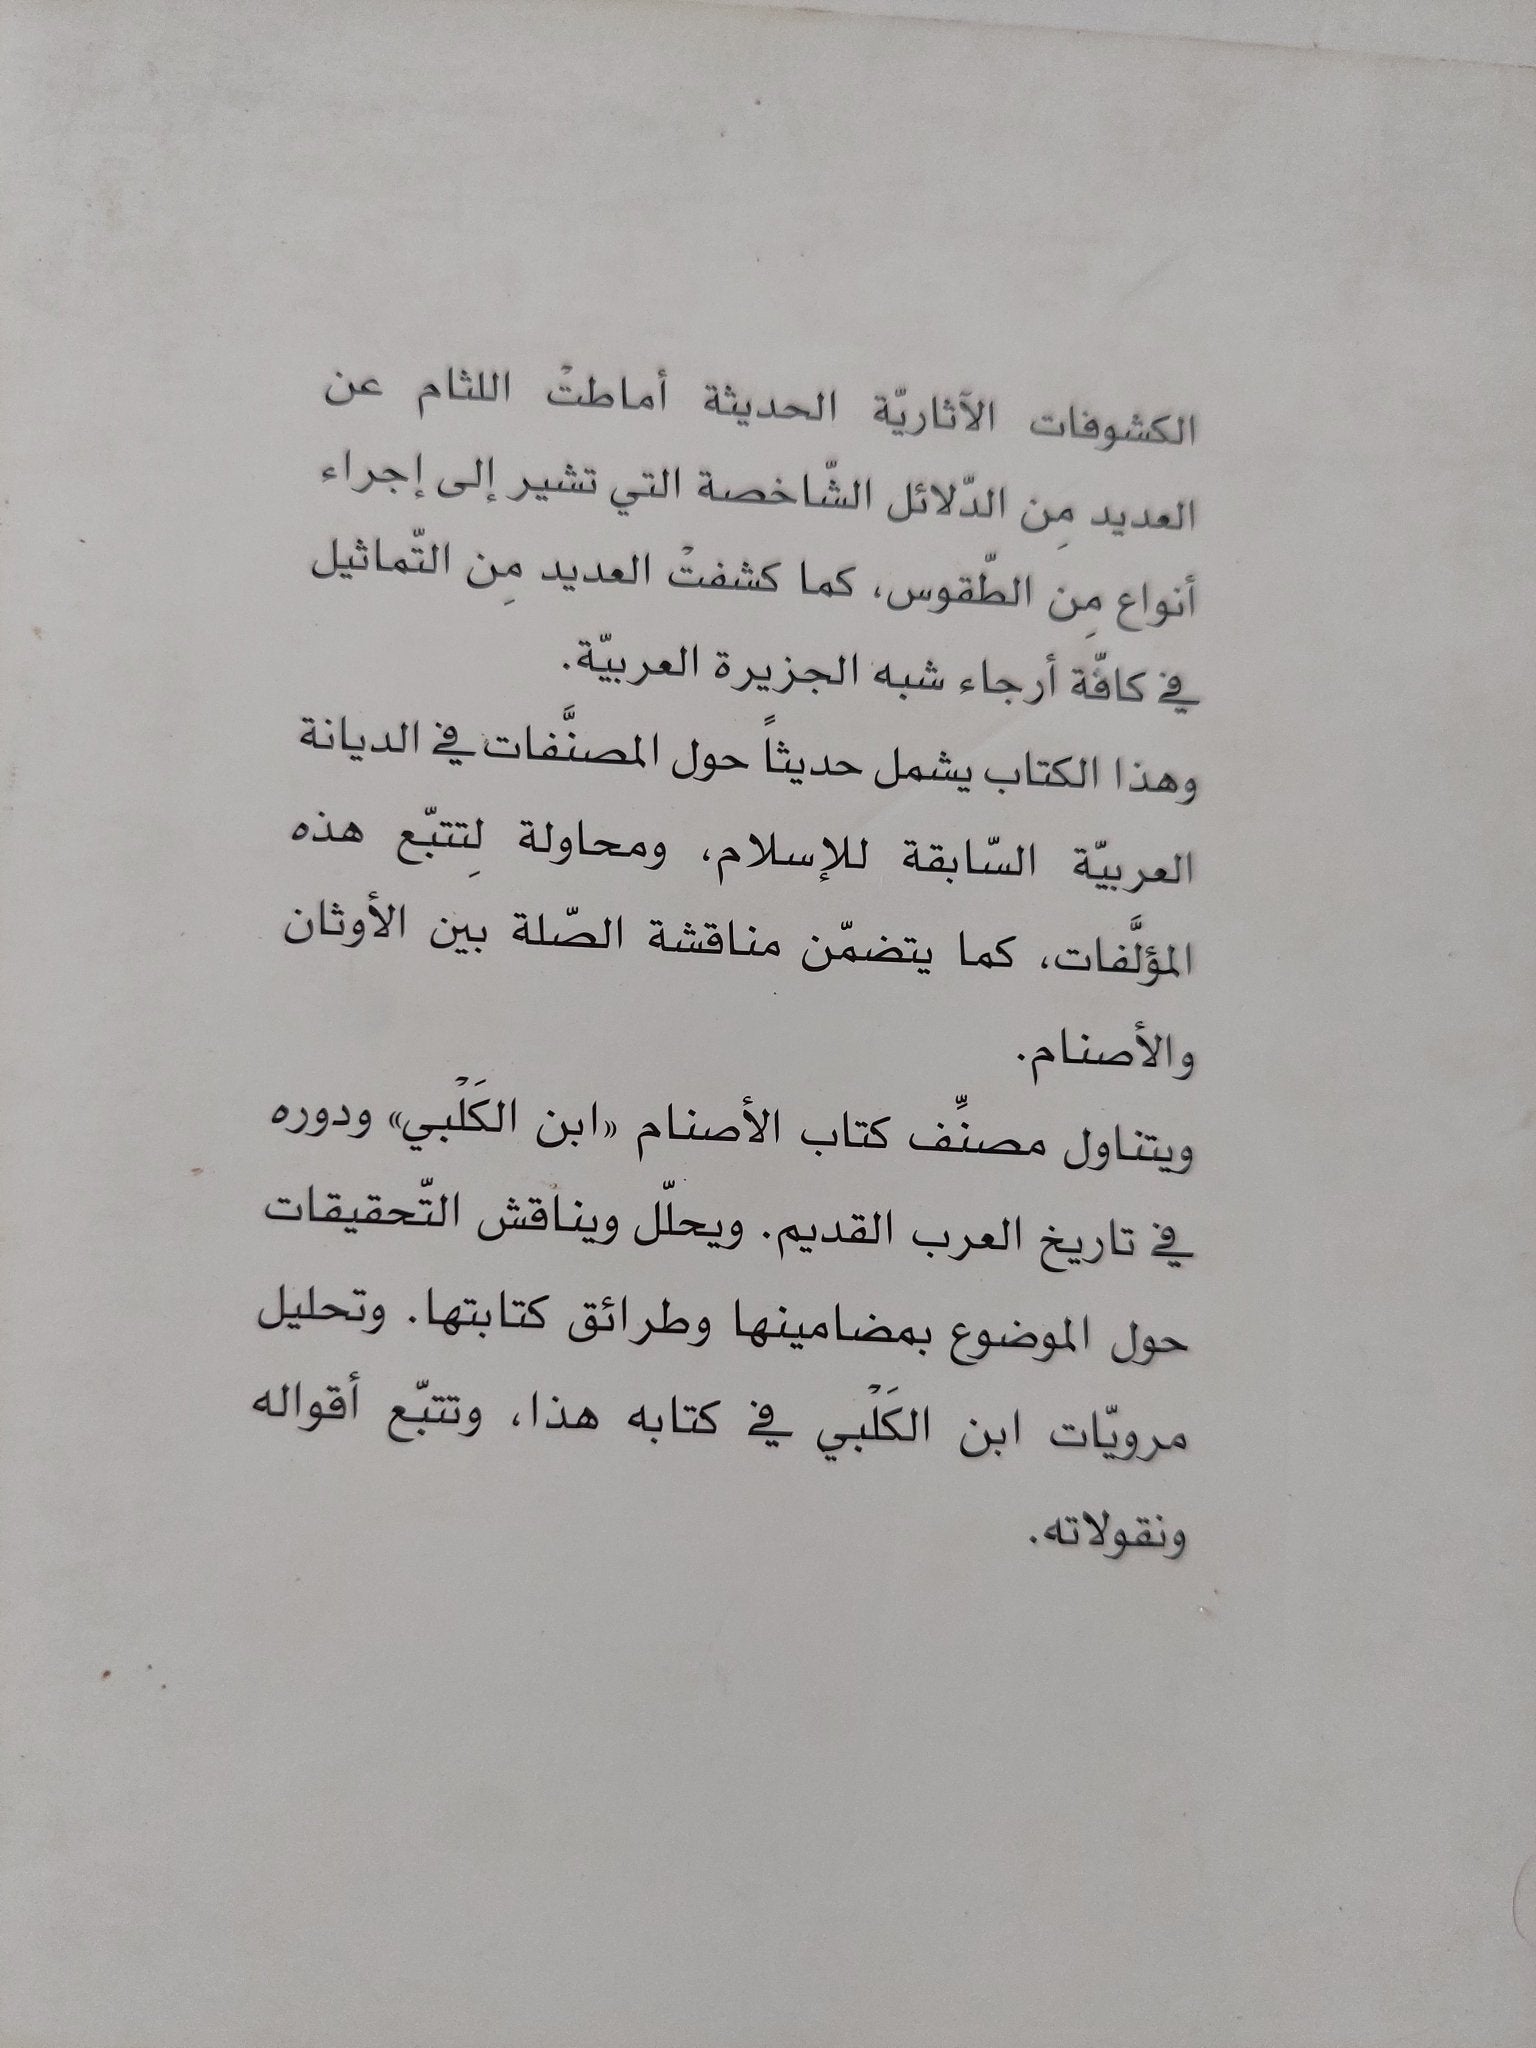 الكشوفات الآثاريّة الحديثة أماطتْ اللثام عن
العديد مِن الدّلائل الشّاخصة التي تشير إلى إجراء
أنواع مِن الطّقوس، كما كشفتْ العديد مِن التّماثيل
في كافّة أرجاء شبه الجزيرة العربيّة.
وهذا الكتاب يشمل حديثاً حول المصنَّفات في الديانة
العربيّة السّابقة للإسلام، ومحاولة لِتتبّع هذه
المؤلَّفات، كما يتضمّن مناقشة الصّلة بين الأوثان
والأصنام.
ويتناول مصنِّف كتاب الأصنام «ابن الكَلْبي» ودوره
في تاريخ العرب القديم. ويحلّل ويناقش التّحقيقات
حول الموضوع بمضامينها وطرائق كتابتها. وتحليل
مرويّات ابن الكَلْبي في كتابه هذا، وتتبّع أقواله
ونقولاته.